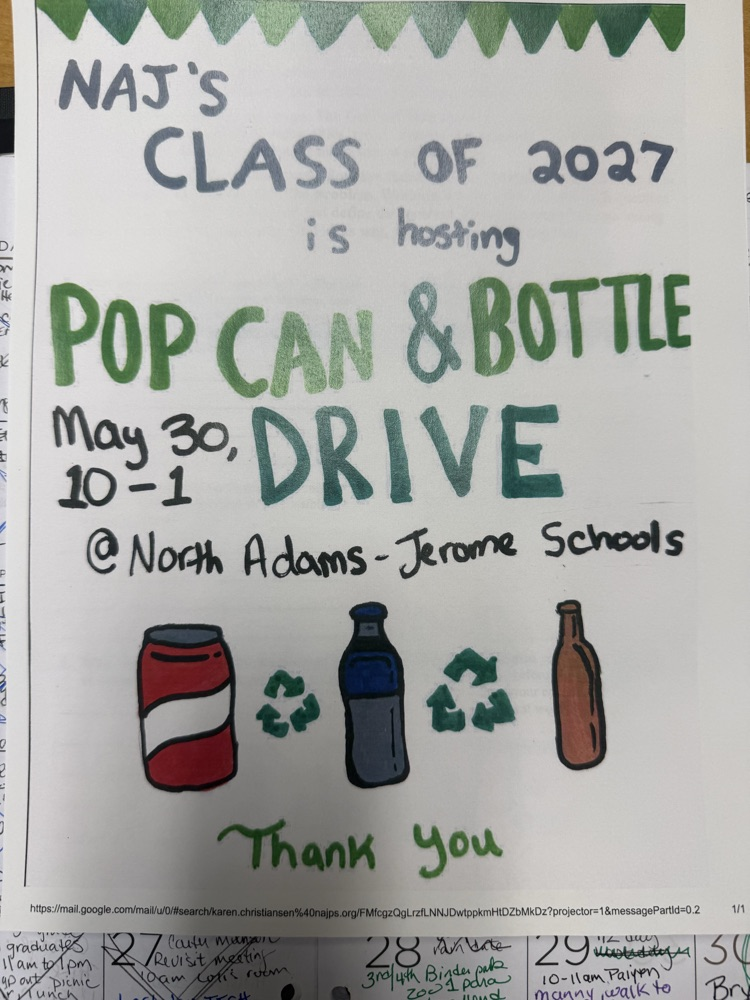 NAJ'S
CLASS OF 2027
is hosting
POP CAN & BOTTLE
May 30, DRIVE
10-1
@ North Adams-Jerome Schools
Thank You
https://mail.google.com/mail/u/0/#search/karen.christiansen%40najps.org/FMfcgzQgLrzfLNNJDwtppkmHtDZbMkDz?projector=1&messagePartId=0.2 1/1
graduates 27 28 29 30
11am to 1pm Revisit meeting
picnic 10am room 3rd/4th Binder park 10-11am
lunch 2001 manny walk to